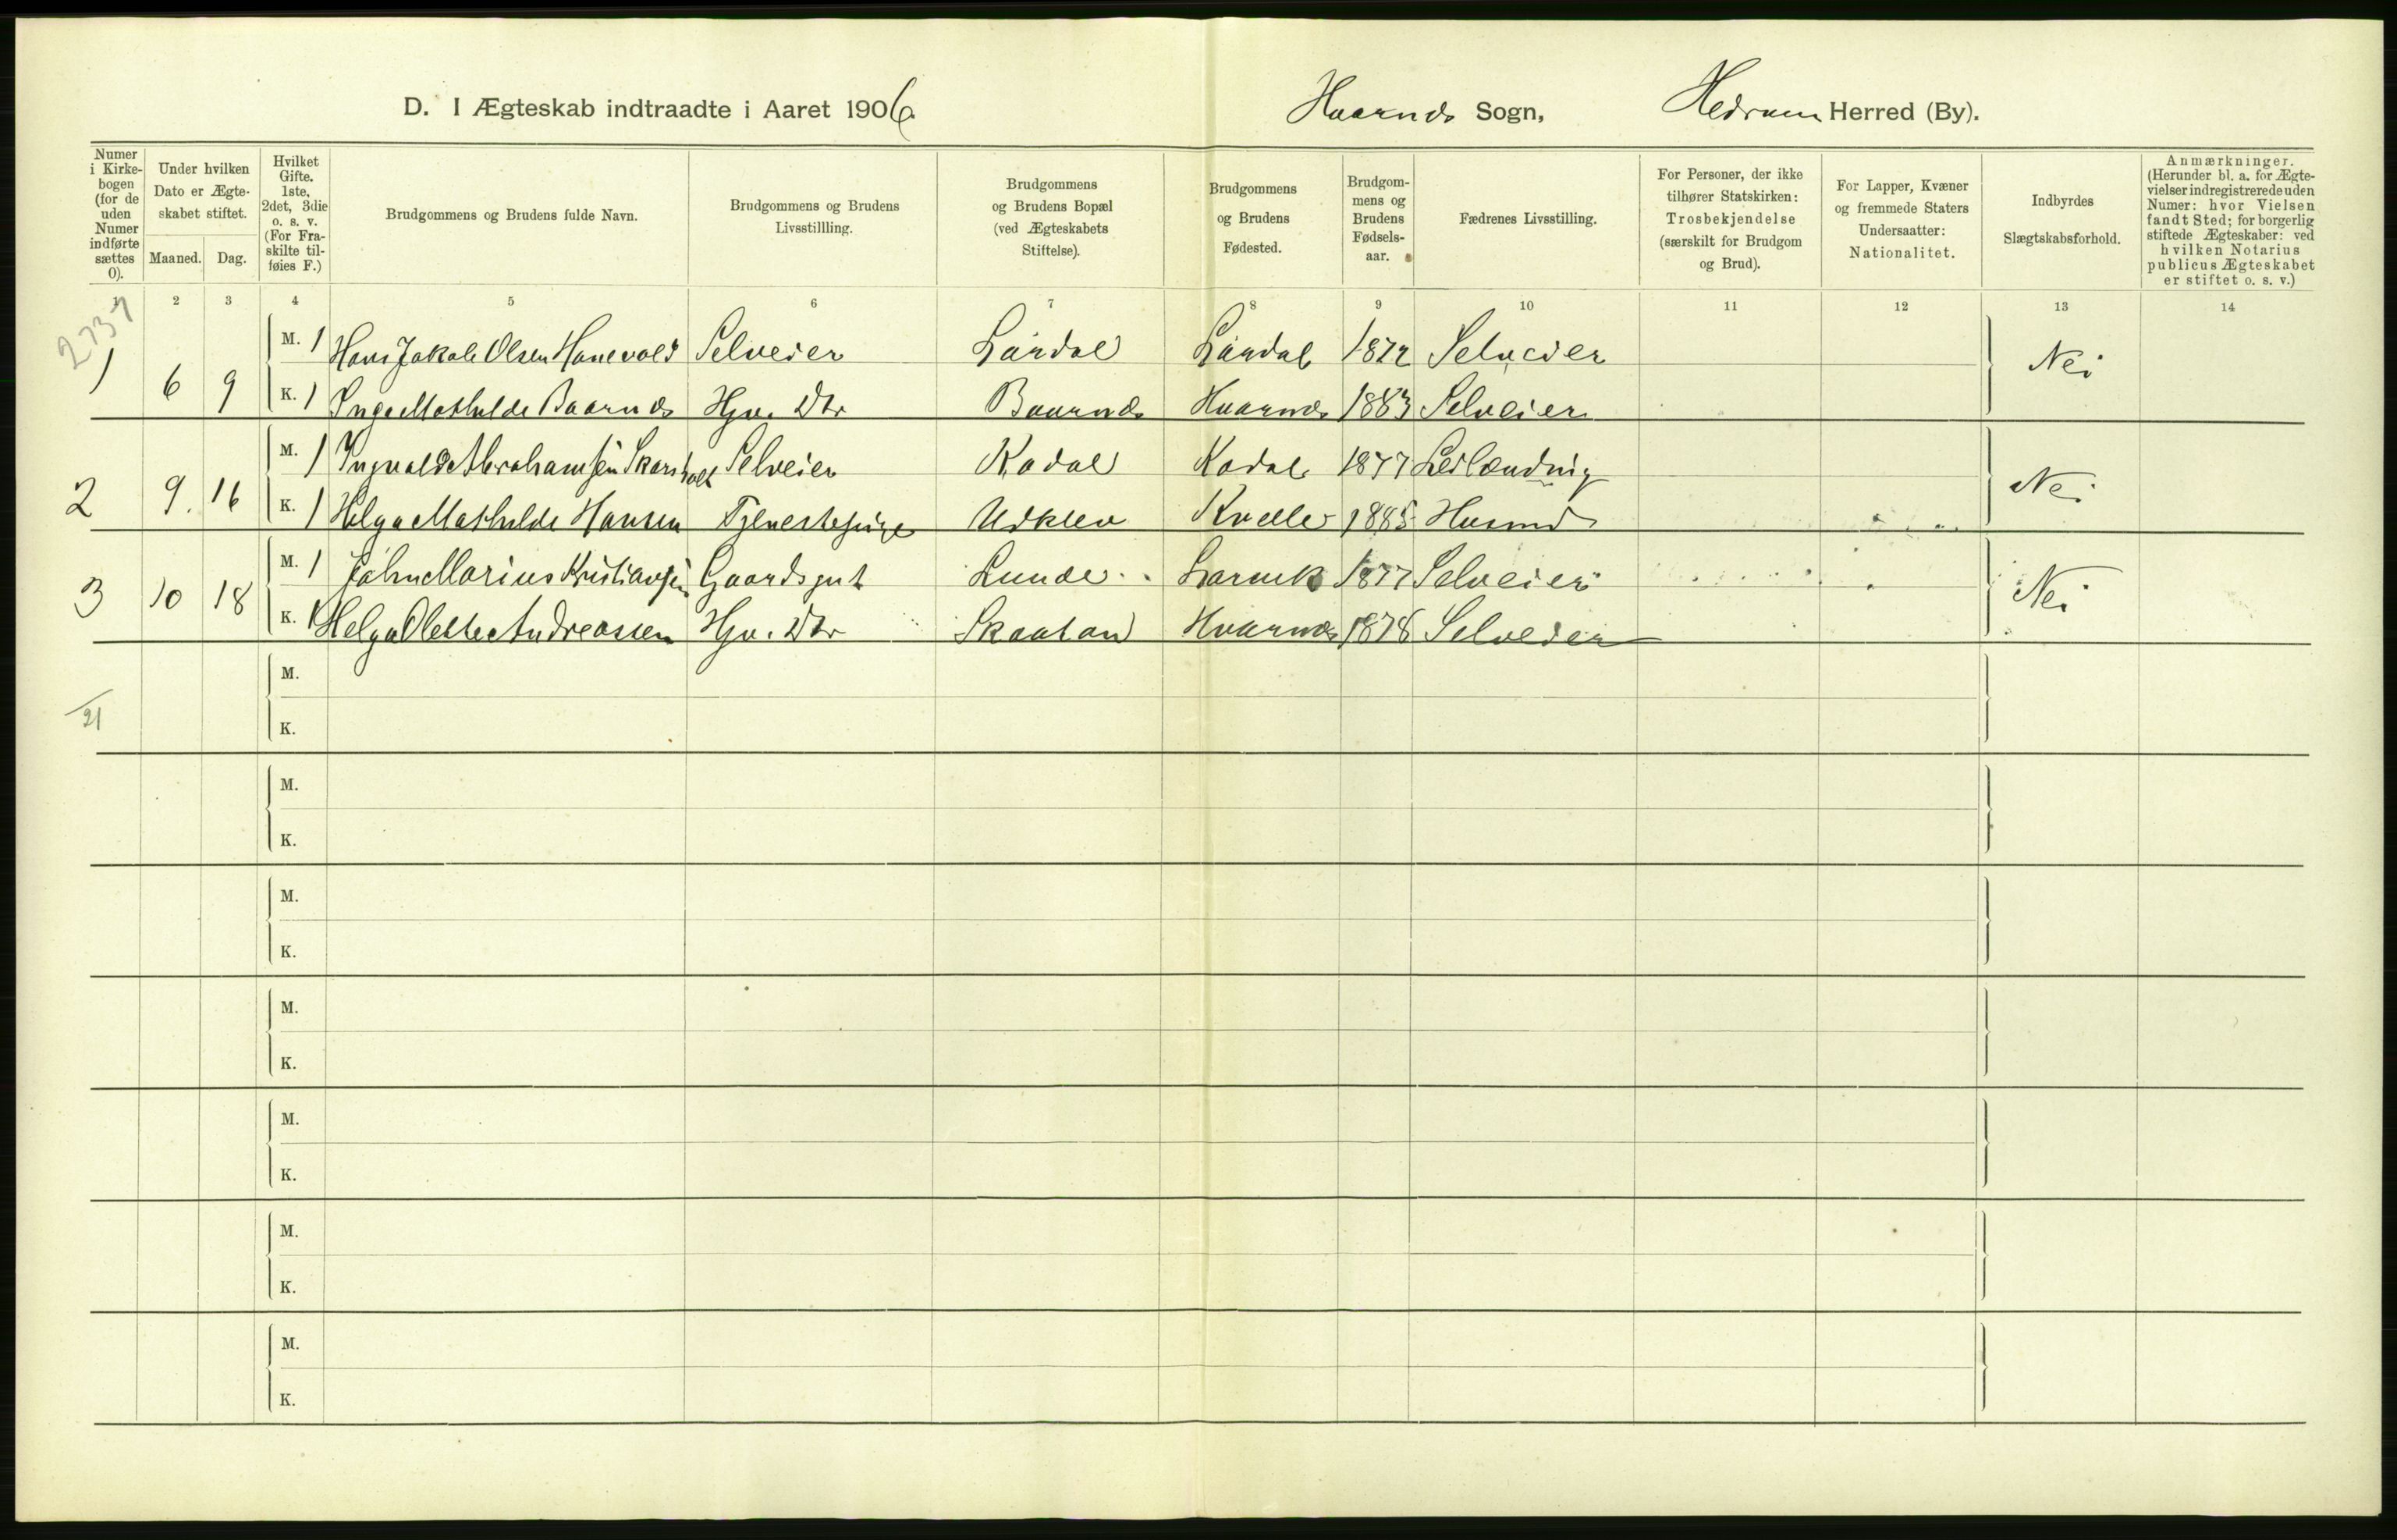 D. I Ægteskab indtraadte i Aaret 1906. Hvarnes Sogn, Hedrum Herred (By).
Numer i Kirkebogen (for de uden Numer indførte sættes 0).
Under hvilken Dato er Ægteskabet stiftet.
Maaned. Dag.
Hvilket Gifte. 1ste, 2det, 3die o. s. v. (For Fraskilte tilføies F.)
Brudgommens og Brudens fulde Navn.
Brudgommens og Brudens Livsstillling.
Brudgommens og Brudens Bopæl (ved Ægteskabets Stiftelse).
Brudgommens og Brudens Fødested.
Brudgommens og Brudens Fødselsaar.
Fædrenes Livsstilling.
For Personer, der ikke tilhører Statskirken: Trosbekjendelse (særskilt for Brudgom og Brud).
For Lapper, Kvæner og fremmede Staters Undersaatter: Nationalitet.
Indbyrdes Slægtskabsforhold.
Anmærkninger. (Herunder bl. a. for Ægtevielser indregistrerede uden Numer: hvor Vielsen fandt Sted; for borgerlig stiftede Ægteskaber: ved hvilken Notarius publicus Ægteskabet er stiftet o. s. v.)
1 2 3 4 5 6 7 8 9 10 11 12 13 14
2737
M. 1 Hans Jakob Olsen Hanevold Selveier Lardal Lardal 1872 Selveier
1 6 9 Nei
K. 1 Inga Mathilde Baarnes Hjv. Dtr Baarnes Hvarnes 1883 Selveier
M. 1 Ingvald Abrahamsen Skarsholt Selveier Kodal Kodal 1877 Leilænding
2 9. 16 Nei
K. 1 Helga Mathilde Hansen Tjenestepige Odklev Kvelle 1885 Husmd
M. 1 John Marius Kristiansen Gaardsgut Lunde Larvik 1877 Selveier
3 10 18 Nei
K. 1 Helga Olette Andreassen Hjv. Dtr Skaatan Hvarnes 1878 Selveier
M.
21
K.
M.
K.
M.
K.
M.
K.
M.
K.
M.
K.
M.
K.